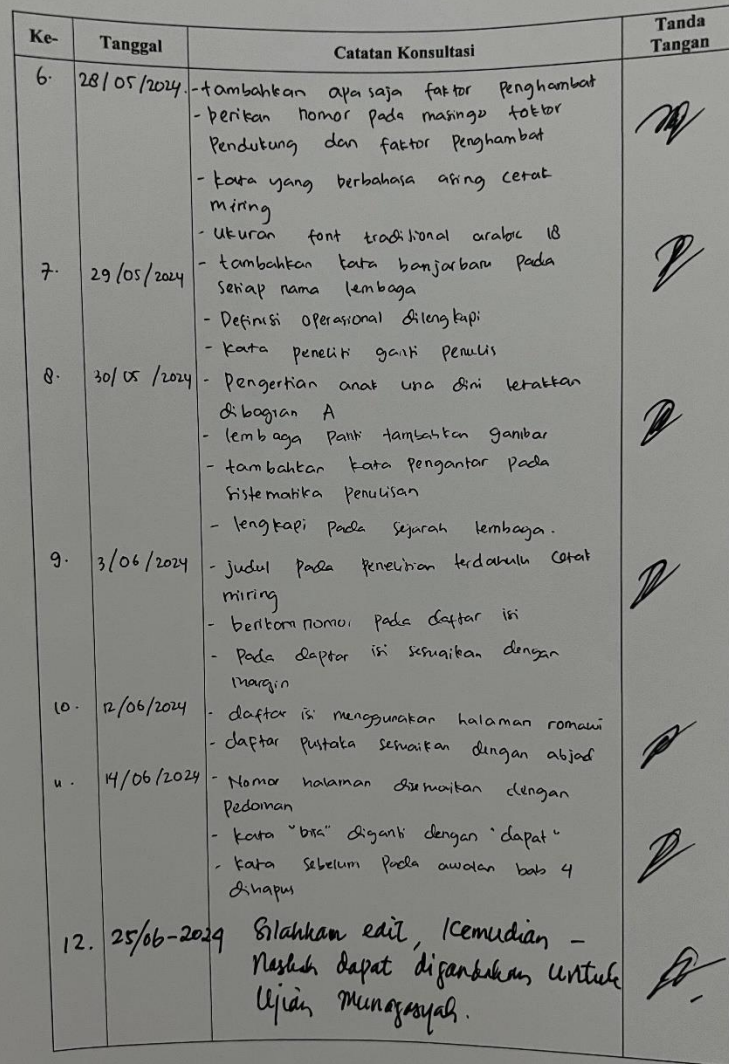 Ke- Tanggal Catatan Konsultasi Tanda Tangan
6. 28/05/2024. - tambahkan apa saja faktor Penghambat
- berikan nomor pada masing2 faktor
Pendukung dan faktor Penghambat
- kata yang berbahasa asing cetak
miring
- ukuran font traditional arabic 18
7. 29/05/2024 - tambahkan kata banjarbaru pada
setiap nama lembaga
- Definisi operasional dilengkapi
- kata peneliti ganti penulis
8. 30/05/2024 - Pengertian anak usia dini letakkan
dibagian A
- lembaga panti tambahkan gambar
- tambahkan kata Pengantar pada
sistematika Penulisan
- lengkapi pada sejarah lembaga.
9. 3/06/2024 - judul pada penelitian terdahulu cetak
miring
- berikan nomor pada daftar isi
- Pada daptar isi sesuaikan dengan
margin
10. 12/06/2024 - daftar isi menggunakan halaman romawi
- daftar pustaka sesuaikan dengan abjad
11. 14/06/2024 - Nomor halaman disesuaikan dengan
Pedoman
- kata "bisa" diganti dengan "dapat"
- kata sebelum pada awalan bab 4
dihapus
12. 25/06-2024 Silahkan edit, Kemudian -
Naskah dapat digandakan untuk
Ujian Munaqasyah.